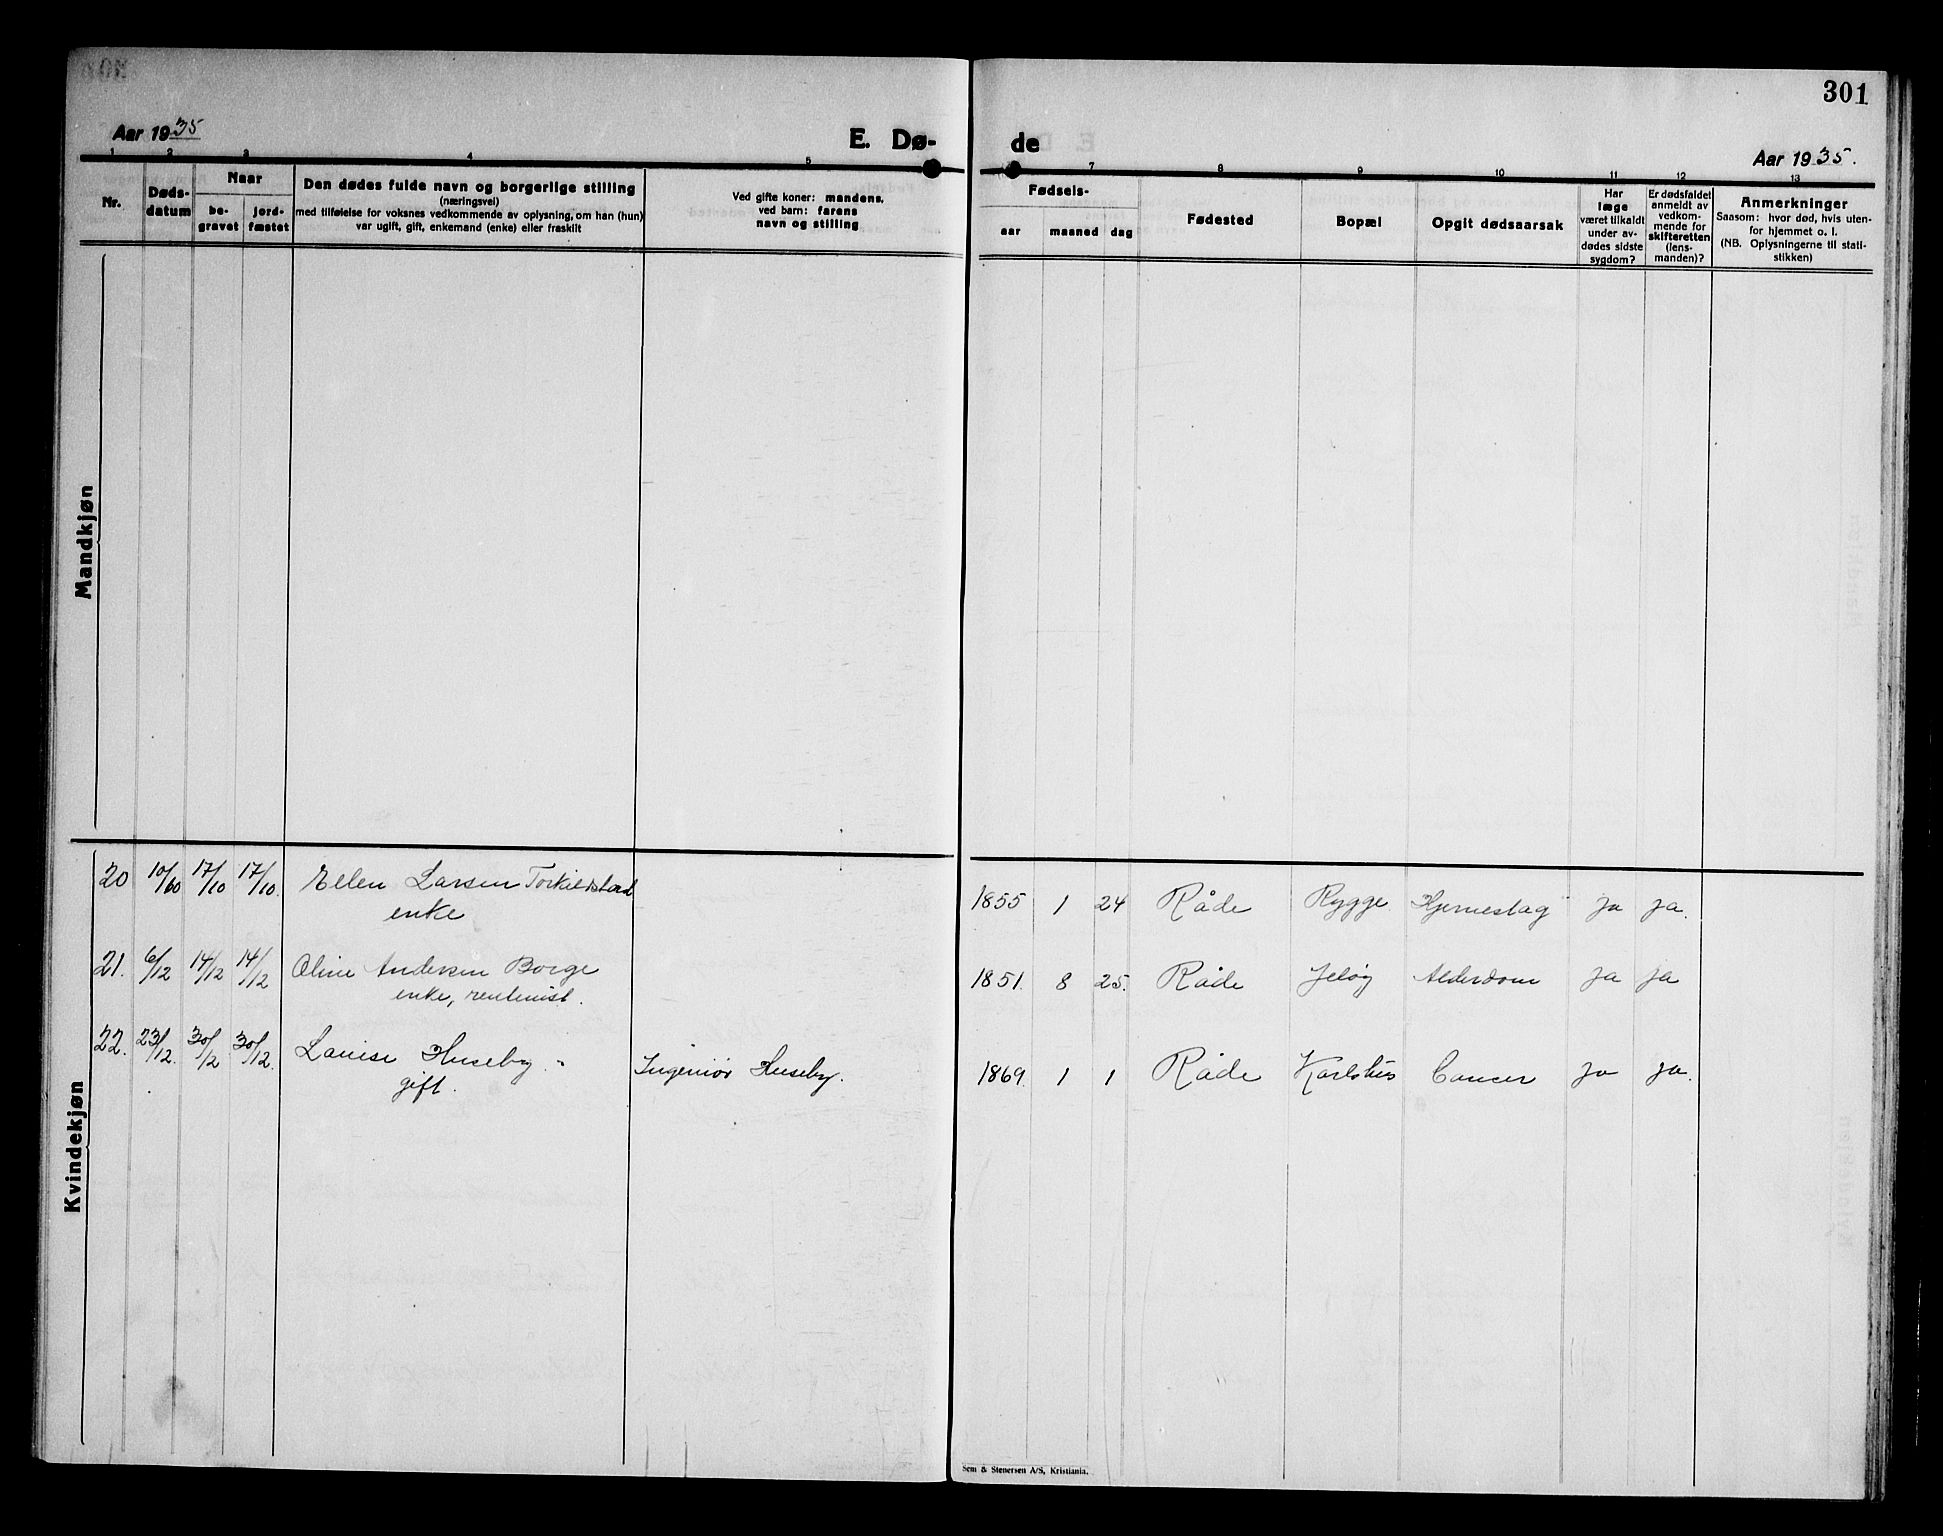 301
Aar 1935
E. Dø-
de
Aar 1935.
1 2 3 4 5 7 8 9 10 11 12 13
Nr.
Døds-
datum
Naar
be-
gravet
jord-
fæstet
Den dødes fulde navn og borgerlige stilling
(næringsvei)
med tilføielse for voksnes vedkommende av oplysning, om han (hun)
var ugift, gift, enkemand (enke) eller fraskilt
Ved gifte koner: mandens,
ved barn: farens
navn og stilling
Fødsels-
aar maaned dag
Fødested
Bopæl
Opgit dødsaarsak
Har
læge
været tilkaldt
under av-
dødes sidste
sygdom?
Er dødsfaldet
anmeldt av
vedkom-
mende for
skifteretten
(lens-
manden)?
Anmerkninger
Saasom: hvor død, hvis uten-
for hjemmet o. l.
(NB. Oplysningerne til stati-
stikken)
Mandkjøn
Kvindekjøn
20 10/60 17/10 17/10. Ellen Larsen Torkildstad 1855 1 24 Råde Rygge Hjerneslag ja ja.
enke
21. 6/12 14/12 14/12 Oline Andersen Borge 1851. 8 25. Råde Jeløy Alderdom ja ja
enke, rentenist.
22. 23/12. 30/12 30/12. Louise Huseby Ingeniør Huseby. 1869. 1 1 Råde Karlshus Cancer ja ja.
gift.
Sem & Stenersen A/S, Kristiania.